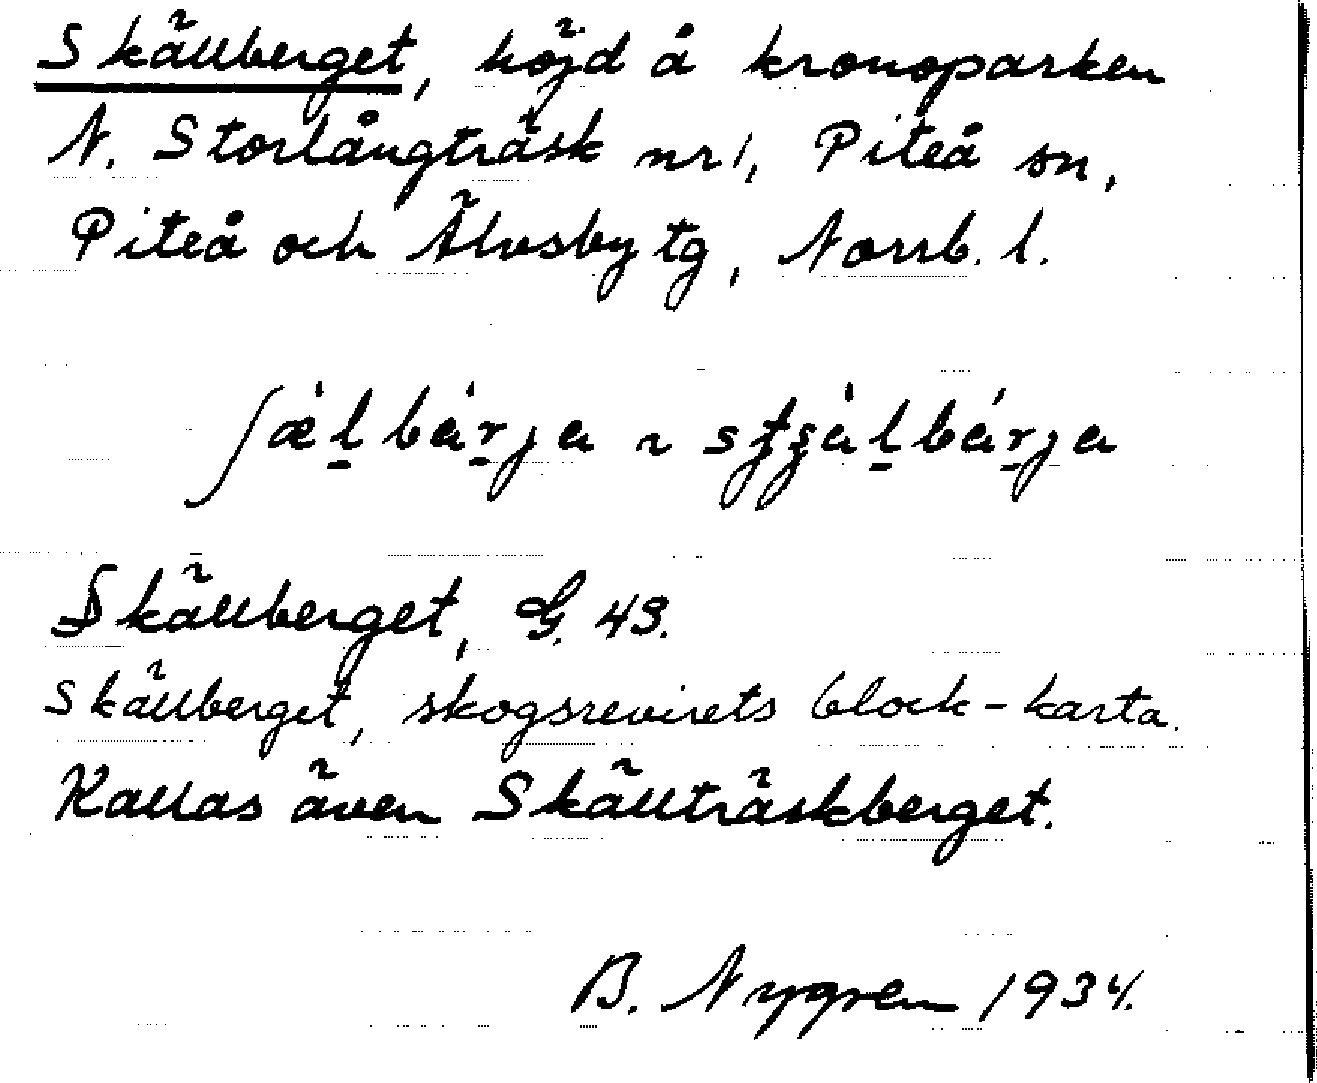 Skällberget, höjd å kronoparken
N. Storlångträsk nr 1, Piteå sn,
Piteå och Älvsby tg, Norrb. l.
Skällberget, G. 43.
Skällberget, skogsrevirets block-karta.
Kallas även Skällträskberget.
B. Nygren 1934.